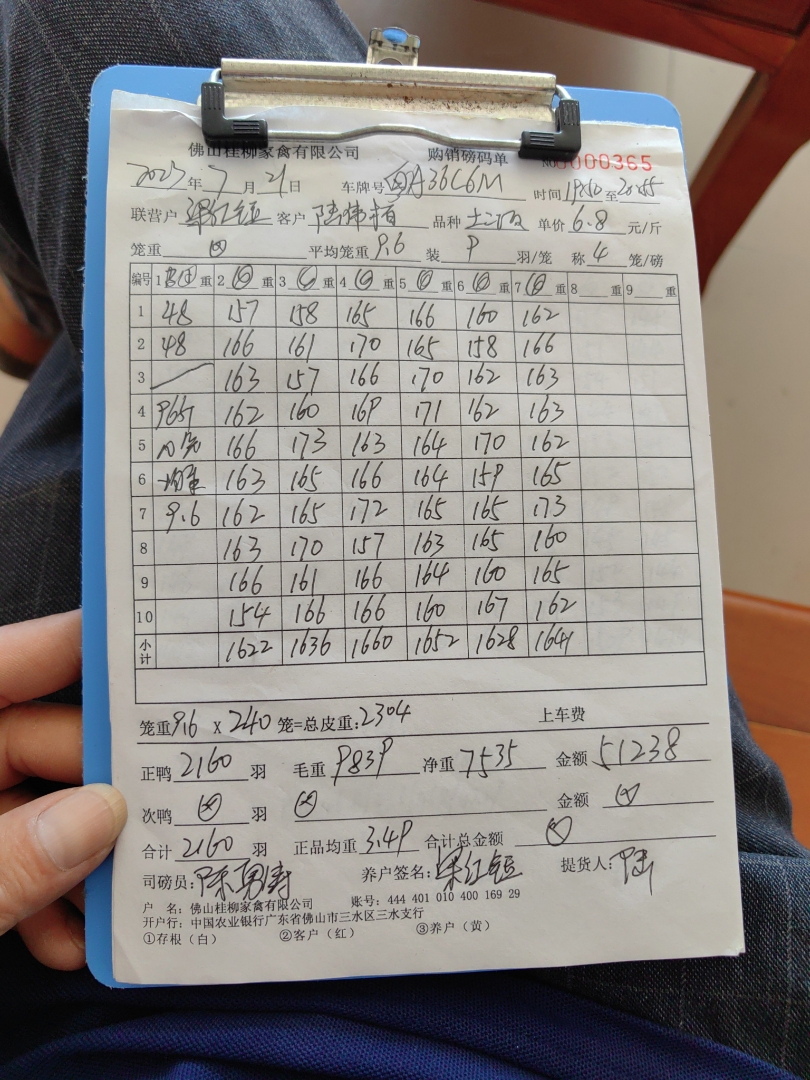 佛山桂柳家禽有限公司 购销磅码单 NO0000365
年 7 月 21 日 车牌号 A36C6M 时间 至
联营户 梁红 客户 陆伟 品种 土二 单价 6.8 元/斤
笼重 ⊗ 平均笼重 9.6 装 9 羽/笼 称 4 笼/磅
编号 1 重 2 重 3 重 4 重 5 重 6 重 7 重 8 重 9 重
1 48 157 158 165 166 160 162
2 48 166 161 170 165 158 166
3 163 157 166 170 162 163
4 162 160 169 171 162 163
5 166 173 163 164 170 162
6 163 165 166 164 159 165
7 9.6 162 165 172 165 165 173
8 163 170 157 163 165 160
9 166 161 166 164 160 165
10 154 166 166 160 167 162
小计 1622 1636 1660 1652 1628 1641
笼重 9.6 x 240 笼=总皮重: 2304 上车费
正鸭 2160 羽 毛重 9839 净重 7535 金额 51238
次鸭 ⊗ 羽 ⊗ 金额 ⊗
合计 2160 羽 正品均重 3.49 合计总金额 ⊗
司磅员: 陈勇涛 养户签名: 梁红 提货人: 陆
户 名: 佛山桂柳家禽有限公司 账号: 444 401 010 400 169 29
开户行: 中国农业银行广东省佛山市三水区三水支行
①存根（白） ②客户（红） ③养户（黄）